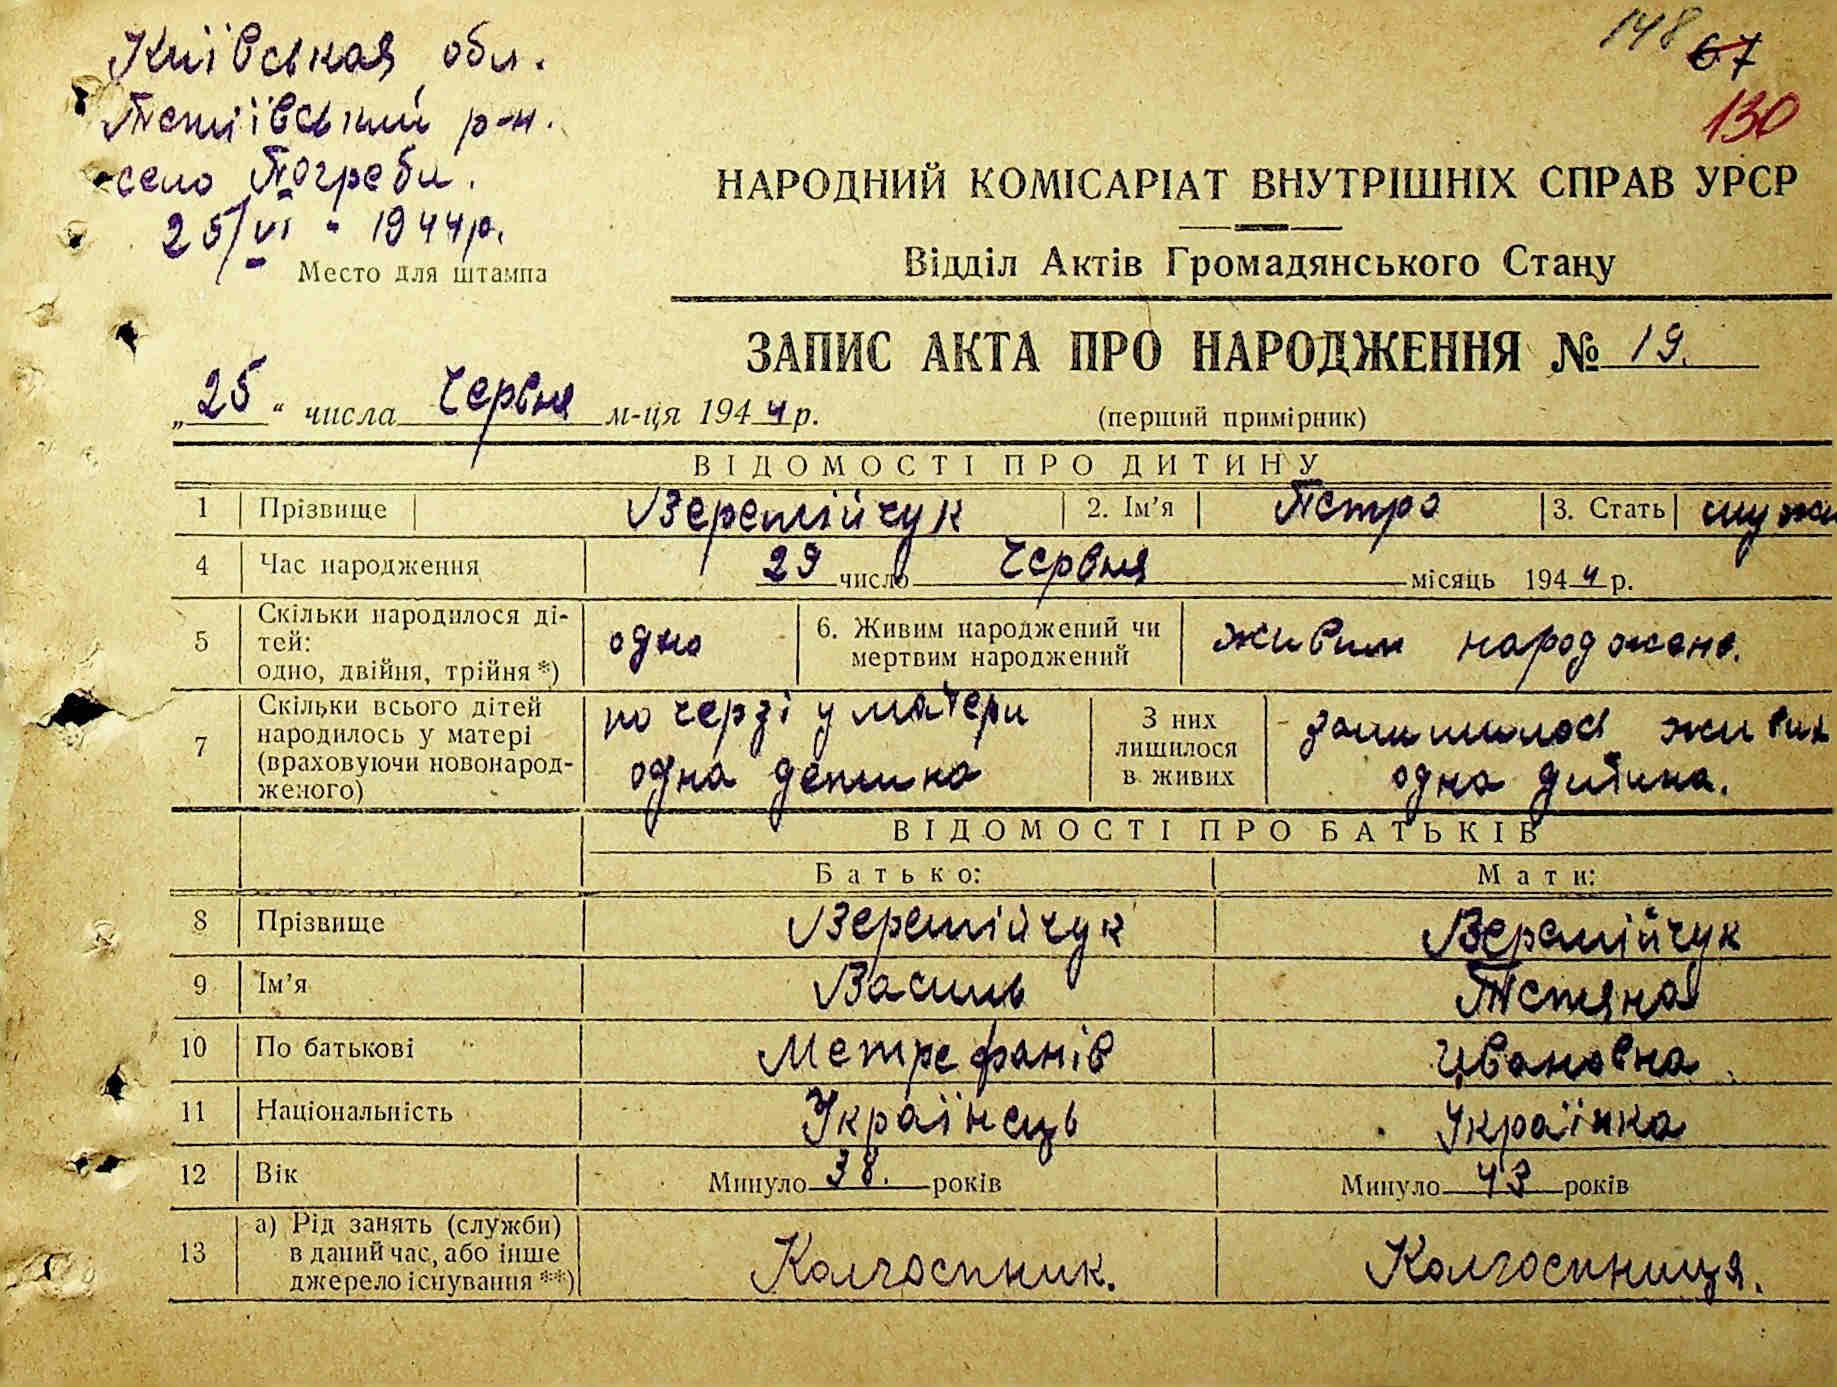 148 67
130
Київськая обл.
Тетіївський р-н.
село Погреби.
25/VI - 1944р.
Место для штампа
НАРОДНИЙ КОМІСАРІАТ ВНУТРІШНІХ СПРАВ УРСР
Відділ Актів Громадянського Стану
ЗАПИС АКТА ПРО НАРОДЖЕННЯ № 19.
„25“ числа Червня м-ця 1944 р.
(перший примірник)
ВІДОМОСТІ ПРО ДИТИНУ
1 Прізвище Веремійчук 2. Ім'я Петро 3. Стать мужч
4 Час народження 23 число Червня місяць 1944 р.
5 Скільки народилося ді-
тей:
одно, двійня, трійня *)
одно
6. Живим народжений чи
мертвим народжений
живим народжене.
7 Скільки всього дітей
народилось у матері
(враховуючи новонарод-
женого)
по черзі у матери
одна детина
З них
лишилося
в живих
залишилося живих
одна дитина.
ВІДОМОСТІ ПРО БАТЬКІВ
Батько: Мати:
8 Прізвище Веремійчук Веремійчук
9 Ім'я Василь Тетяна
10 По батькові Метрефанів Ивановна
11 Національність Українець Українка
12 Вік Минуло 38. років Минуло 43 років
13 а) Рід занять (служби)
в даний час, або інше
джерело існування **)
Колгоспник. Колгоспниця.